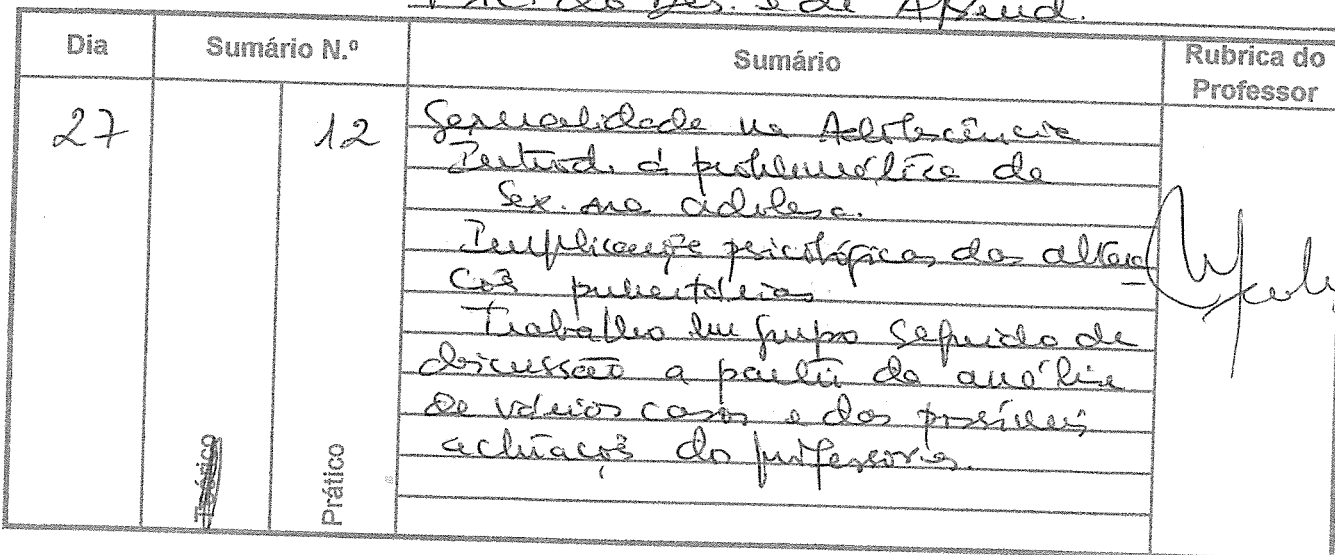 Psic. do Des. e de Aprend.
Dia Sumário N.º Sumário Rubrica do Professor
27 12 Sexualidade na Adolescência
Introd. à problemática da
Sex. na adolesc.
Implicações psicológicas das altera
ções pubertárias
Trabalho em grupo seguido de
discussão a partir da análise
de vários casos e das possíveis
actuações do professor.
Teórico
Prático